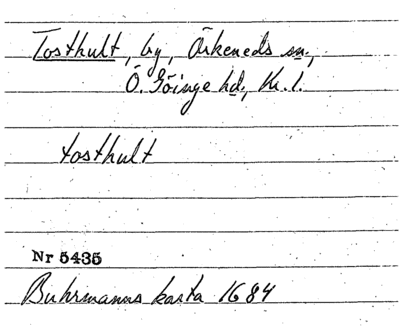 Tosthult, by, Örkeneds sn.,
Ö. Göinge hd., Kr. l.
tosthult
Nr 5435
Buhrmanns karta 1684